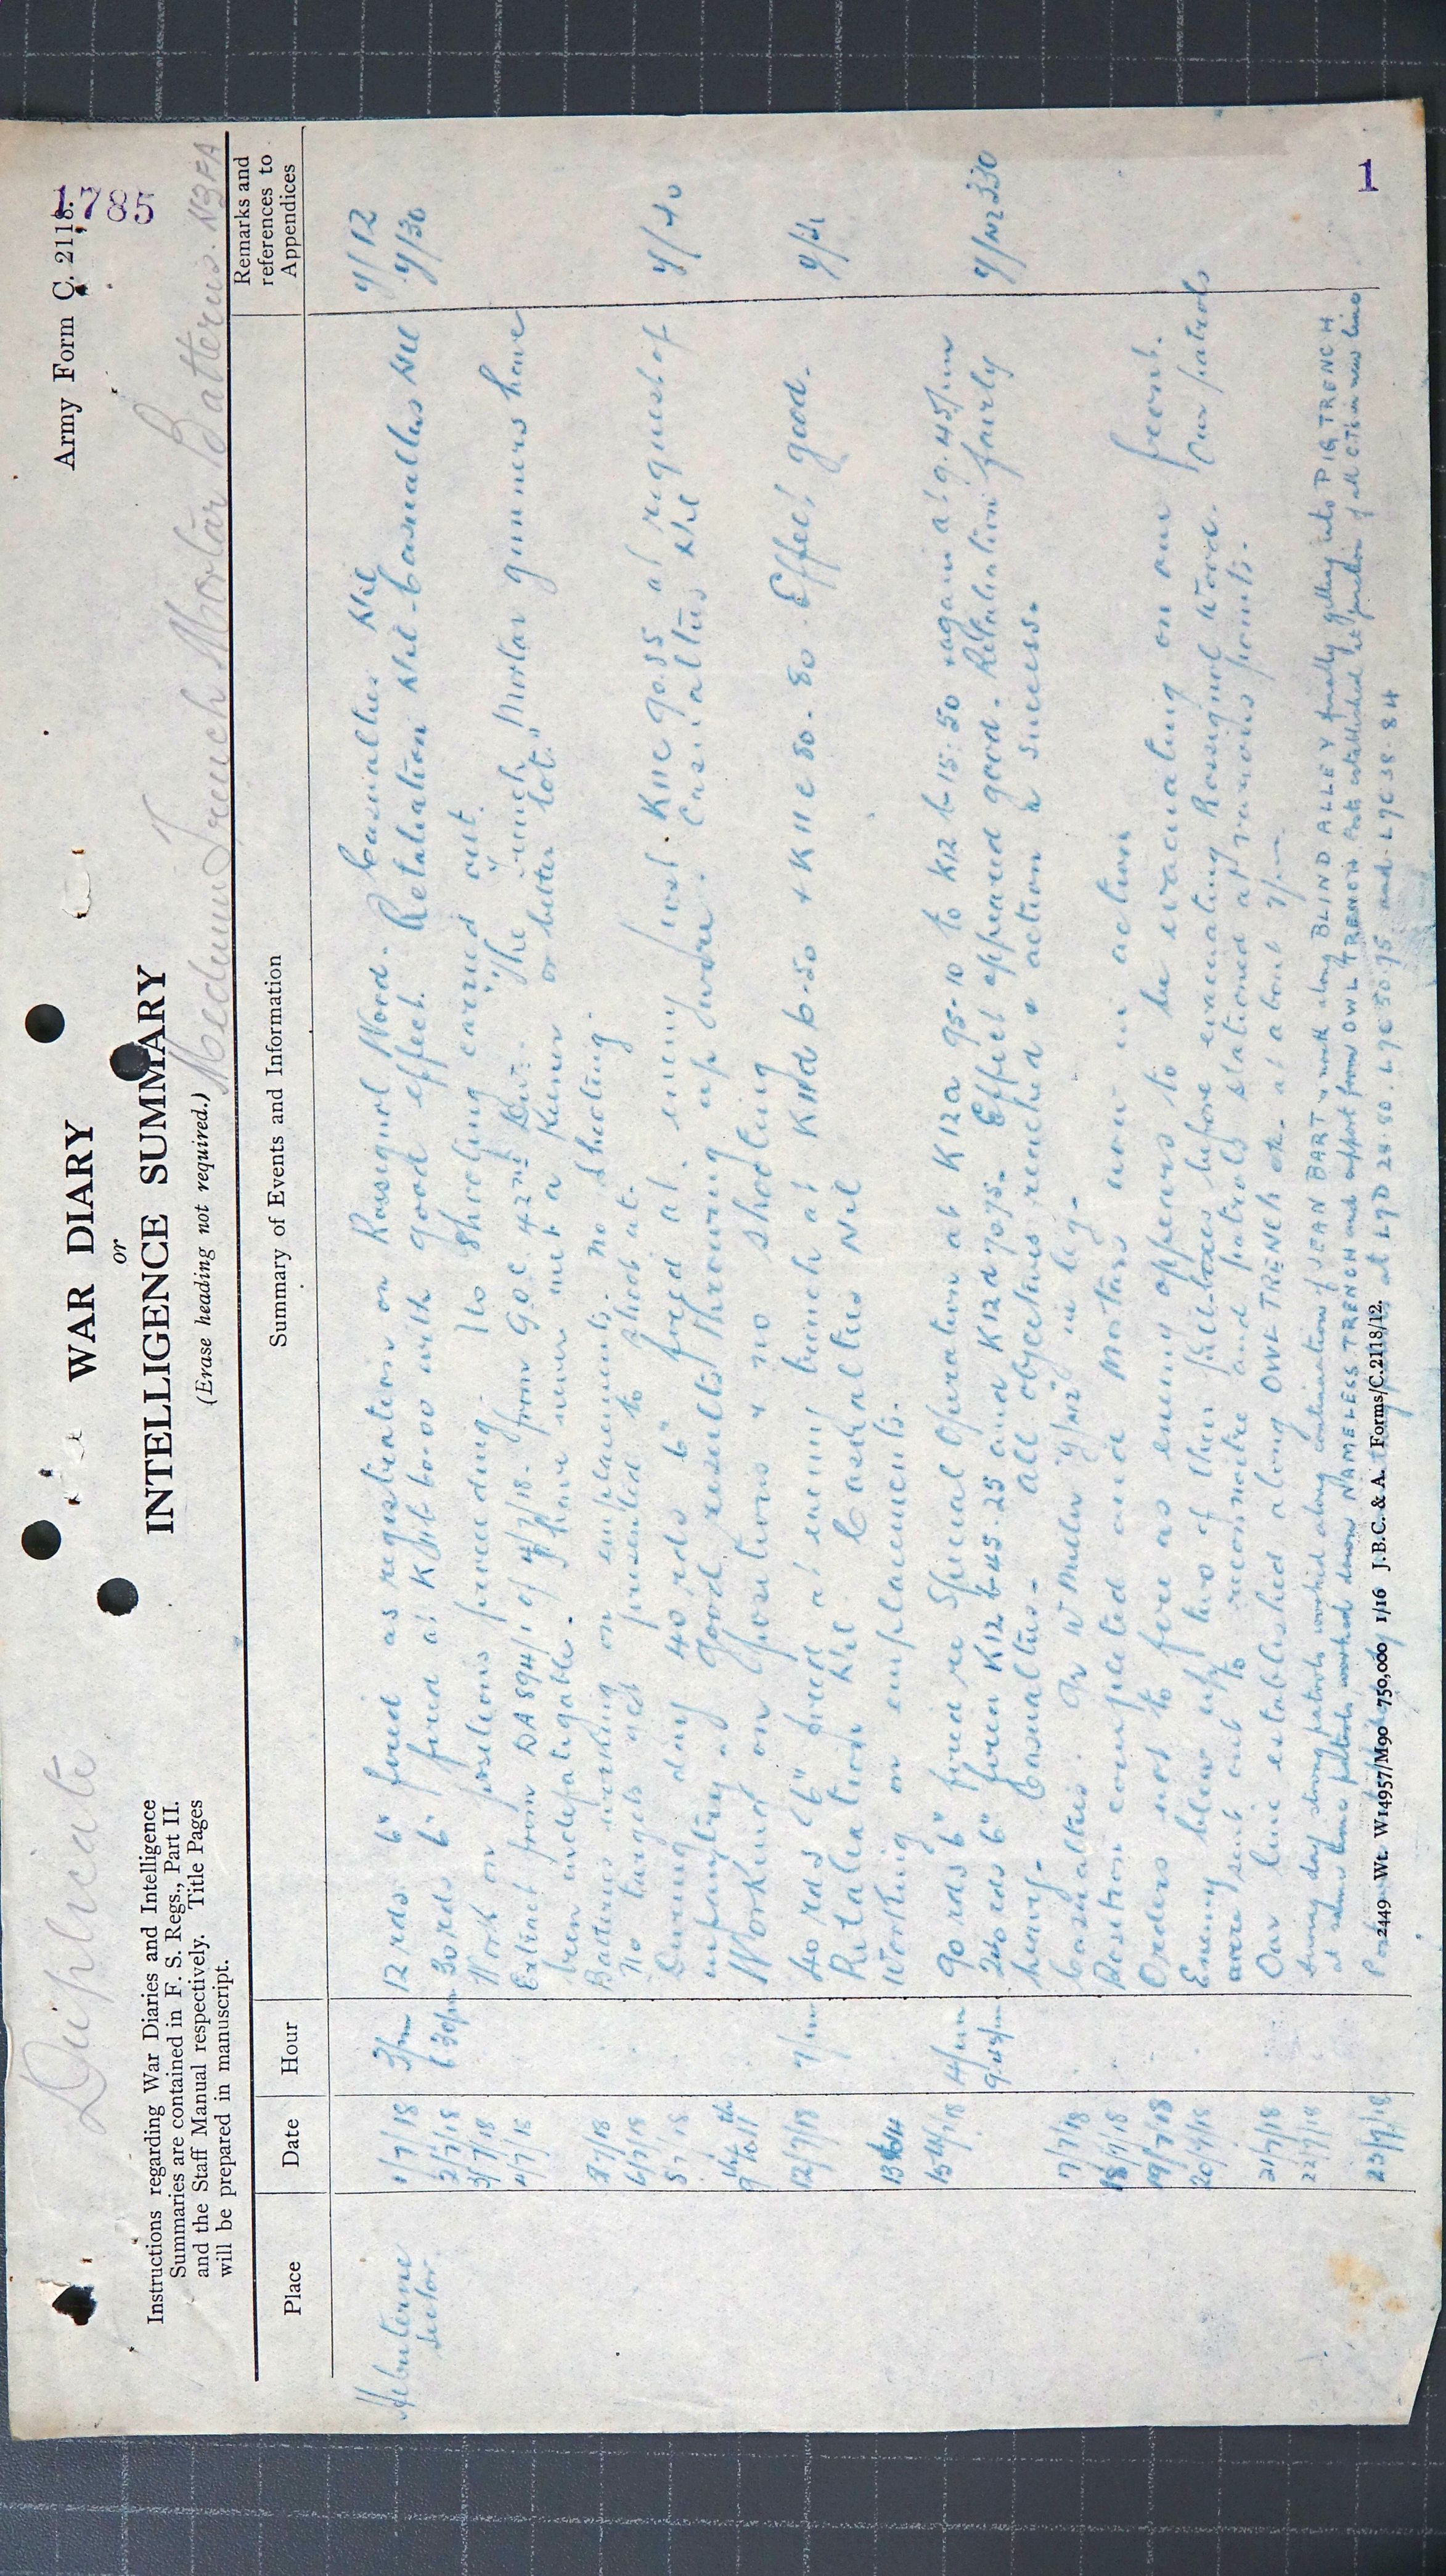 Duplicate
Army Form C. 2118.
1785
WAR DIARY
or
INTELLIGENCE SUMMARY
(Erase heading not required.)
Medium Trench Mortar Batteries. NZFA
Instructions regarding War Diaries and Intelligence
Summaries are contained in F. S. Regs., Part II.
and the Staff Manual respectively. Title Pages
will be prepared in manuscript.
Place Date Hour Summary of Events and Information Remarks and references to Appendices
Hebuterne 1/7/18 3pm 12 rds 6" fired as registration on Rossignol Wood. Casualties Nil Y/12
Sector 2/7/18 6.30pm 30 rds 6" fired at 60.00 with good effect. Retaliation Nil Casualties Nil Y/30
3/7/18 Work on positions proceeding. No shooting carried out.
4/7/18 Extract from DA 894/1 of 4/7/18. from G.O.C. 42nd Div. "The Trench Mortar gunners have
been indefatigable. I have never met a keener or better lot."
7/18 Batteries working on emplacements. no shooting.
6/7/18 No targets presented to shoot at.
During day 40 rds 6" fired at enemy post. K11c 90.55 at request of Y/40
infantry. Good results throwing up wire. Casualties Nil
9th to 11th Worked on positions & no shooting
12/7/18 7pm 40 rds 6" fired at enemy trench at K11d 6.50 + K11c 80.80. Effect good. Y/40
Retaliation Nil Casualties Nil
Working on emplacements.
4pm 90 rds 6" fired re Special Operation at K12a 95.10 to K12 b.15.50 again at 9.45pm
9.45pm 240 rds 6" fired K12 b.45.25 and K12d 70.75. Effect appeared good. Retaliation fairly Y/M2 330
heavy. Casualties. All objectives reached & action a success.
Casualties. W Miller Y/M2 in leg.
18/7/18 Position completed and Mortars now in action
19/7/18 Orders not to fire as enemy appears to be evacuating on our front.
20/7/18 Enemy blew up two of their pill-boxes before evacuating Rossignol Wood. Our patrols
were sent out to reconnoitre and patrols stationed at various points.
21/7/18 Our line established along OWL TRENCH etc. at about 7pm.
22/7/18 During day strong patrols worked along continuation of JEAN BART & north along BLIND ALLEY finally getting into PIG TRENCH
at same time patrols worked down NAMELESS TRENCH and support from OWL TRENCH Posts established at junction of all CTs in new line
23/7/18 at L7D 28.80. L7C 50.95 and L7C 38.84
2449 Wt. W14957/M90 750,000 1/16 J.B.C. & A. Forms/C.2118/12.
1